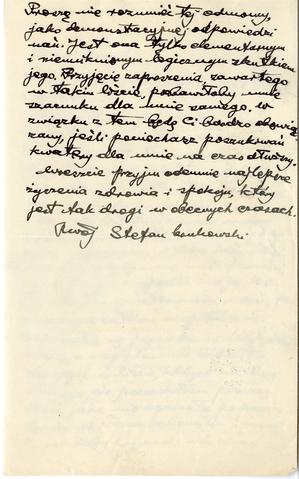 Proszę nie rozumieć tej odmowy,
jako demonstracyjnej odpowiedzi
nań. Jest ona tylko elementarnym
i nieuniknionym logicznym skutkiem
jego. Przyjęcie zaproszenia, zawartego
w takim liście, pozbawiłoby mnie
szacunku dla mnie samego. W
związku z tem będę Ci bardzo obowią
zany, jeśli poniechasz poszukiwań
kwatery dla mnie na czas dłuższy.
Wreszcie przyjm odemnie najlepsze
życzenia zdrowia i spokoju, który
jest tak drogi w obecnych czasach.
Twój Stefan Krukowski